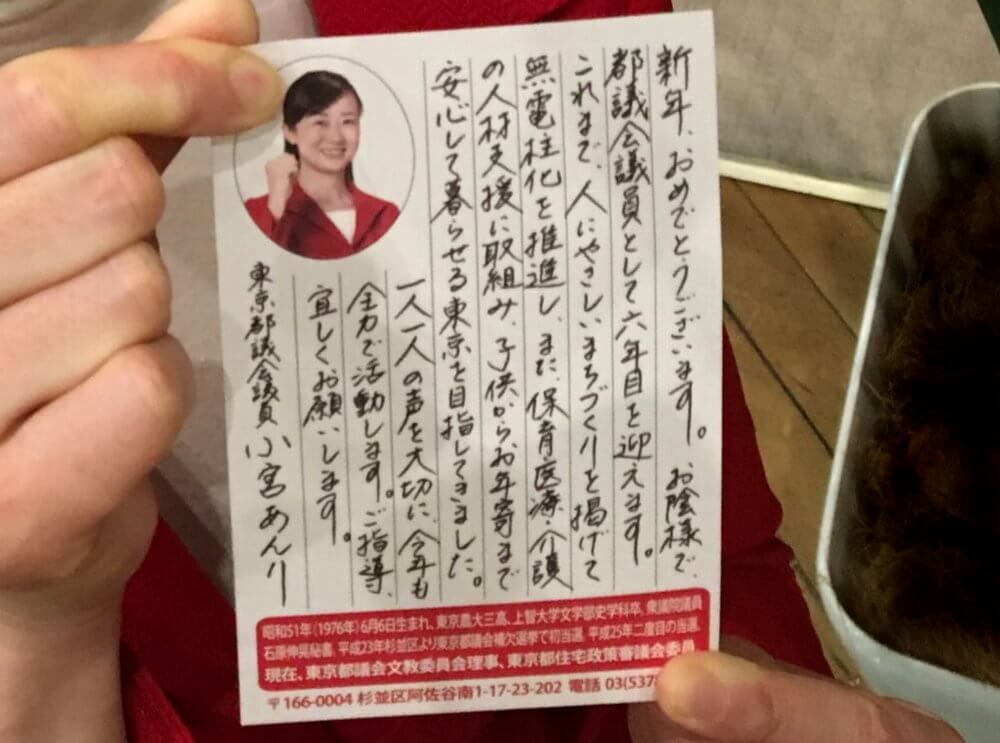 新年、おめでとうございます。お陰様で、
都議会議員として六年目を迎えます。
これまで、人にやさしいまちづくりを掲げて
無電柱化を推進し、また、保育医療・介護
の人材支援に取組み、子供からお年寄まで
安心して暮らせる東京を目指してきました。
一人一人の声を大切に、今年も
全力で活動します。ご指導、
宜しくお願いします。
東京都議会議員 小宮あんり
昭和51年(1976年)6月6日生まれ、東京農大三高、上智大学文学部史学科卒、衆議院議員
石原伸晃秘書、平成23年杉並区より東京都議会補欠選挙で初当選、平成25年二度目の当選、
現在、東京都議会文教委員会理事、東京都住宅政策審議会委員
〒166-0004 杉並区阿佐谷南1-17-23-202 電話 03(5378